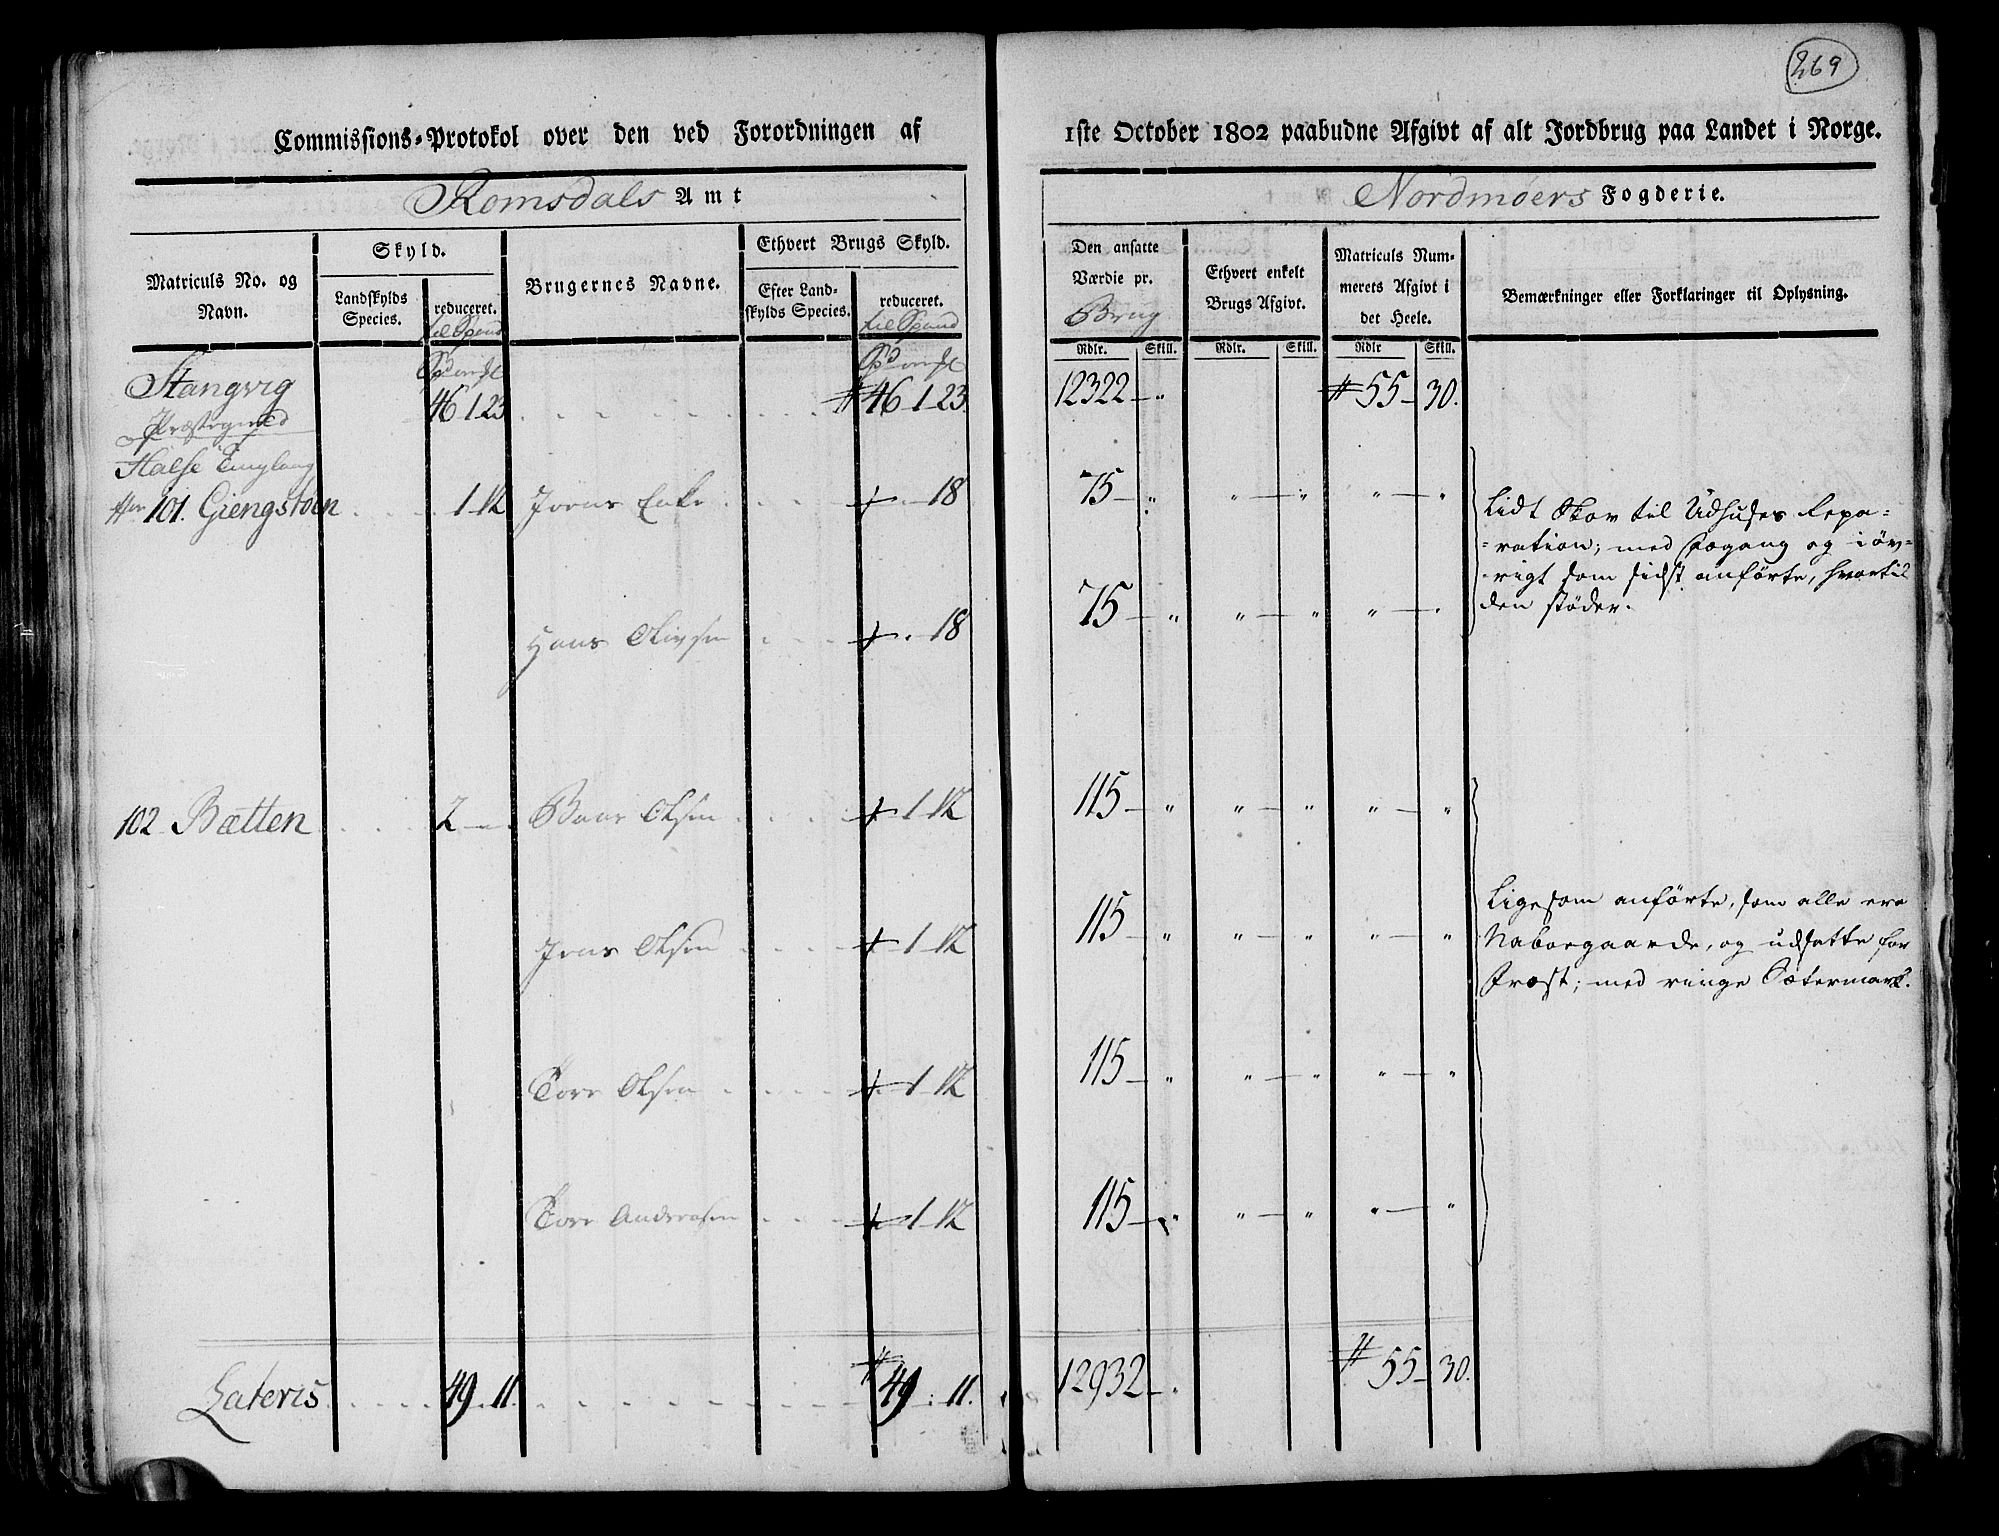 269
Commissions-Protokol over den ved Forordningen af
1ste October 1802 paabudne Afgivt af alt Jordbrug paa Landet i Norge.
Romsdals Amt
Nordmøers Fogderie.
Matriculs No. og Navn.
Skyld.
Landskylds Species.
reduceret. til Spand
Brugernes Navne.
Ethvert Brugs Skyld.
Efter Landskylds Species.
reduceret. til Spand
Den ansatte Værdie pr. Brug
Ethvert enkelt Brugs Afgivt.
Matriculs Nummerets Afgivt i det Heele.
Bemærkninger eller Forklaringer til Oplysning.
Rdlr. Skill. Rdlr. Skill. Rdlr Skill.
Stangvig 46 1 23 46 1 23. 12322 55 30.
Præstegield
Halse
101. Giengstøen 1 12 Joens Enke 18 75
Hans Olivsen 18 75
Lidt Skov til Udhuses Repa=
=ration; med Søgang og i øv=
=rigt som sidst anførte, hvortil
den støder.
102 Bætten 2 Baar Olsen 1 12 115
Jens Olsen 1 12 115
Tore Olsen 1 12 115
Tore Andersen 1 12 115
Ligesom anførte, som alle ere
Naboegaarde, og udsatte for
Frost; med ringe Sætermark.
Lateris 49 11. 49 11. 12932 55 30.